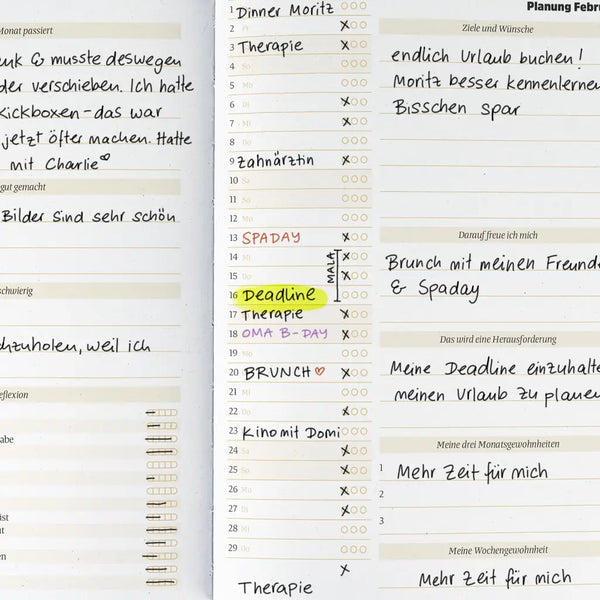 Monat passiert
nk & musste deswegen
der verschieben. Ich hatte
Kickboxen - das war
jetzt öfter machen. Hatte
mit Charlie
gut gemacht
Bilder sind sehr schön
schwierig
chzuholen, weil ich
eflexion
abe
ist
ut
en
1 Dinner Moritz
2 Fr
3 Therapie
4 So
5 Mo
6 Di
7 Mi
8 Do
9 Zahnärztin
10 Sa
11 So
12 Mo
13 SPADAY
14 Mi
15 Do
MALA
16 Deadline
17 Therapie
18 OMA B-DAY
19 Mo
20 BRUNCH
21 Mi
22 Do
23 Kino mit Domi
24 Sa
25 So
26 Mo
27 Di
28 Mi
29 Do
Therapie
Planung Febru
Ziele und Wünsche
endlich Urlaub buchen!
Moritz besser kennenlernen
Bisschen spar
Darauf freue ich mich
Brunch mit meinen Freund
& Spaday
Das wird eine Herausforderung
Meine Deadline einzuhalte
meinen Urlaub zu planen
Meine drei Monatsgewohnheiten
1 Mehr Zeit für mich
2
3
Meine Wochengewohnheit
Mehr Zeit für mich